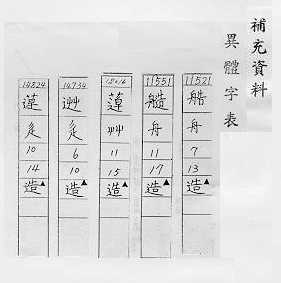 補充資料
異體字表
11521
艁
舟
7
13
造▲
11551
艁
舟
11
17
造▲
艸
11
15
造▲
14734
辵
6
10
造▲
14824
辵
10
14
造▲